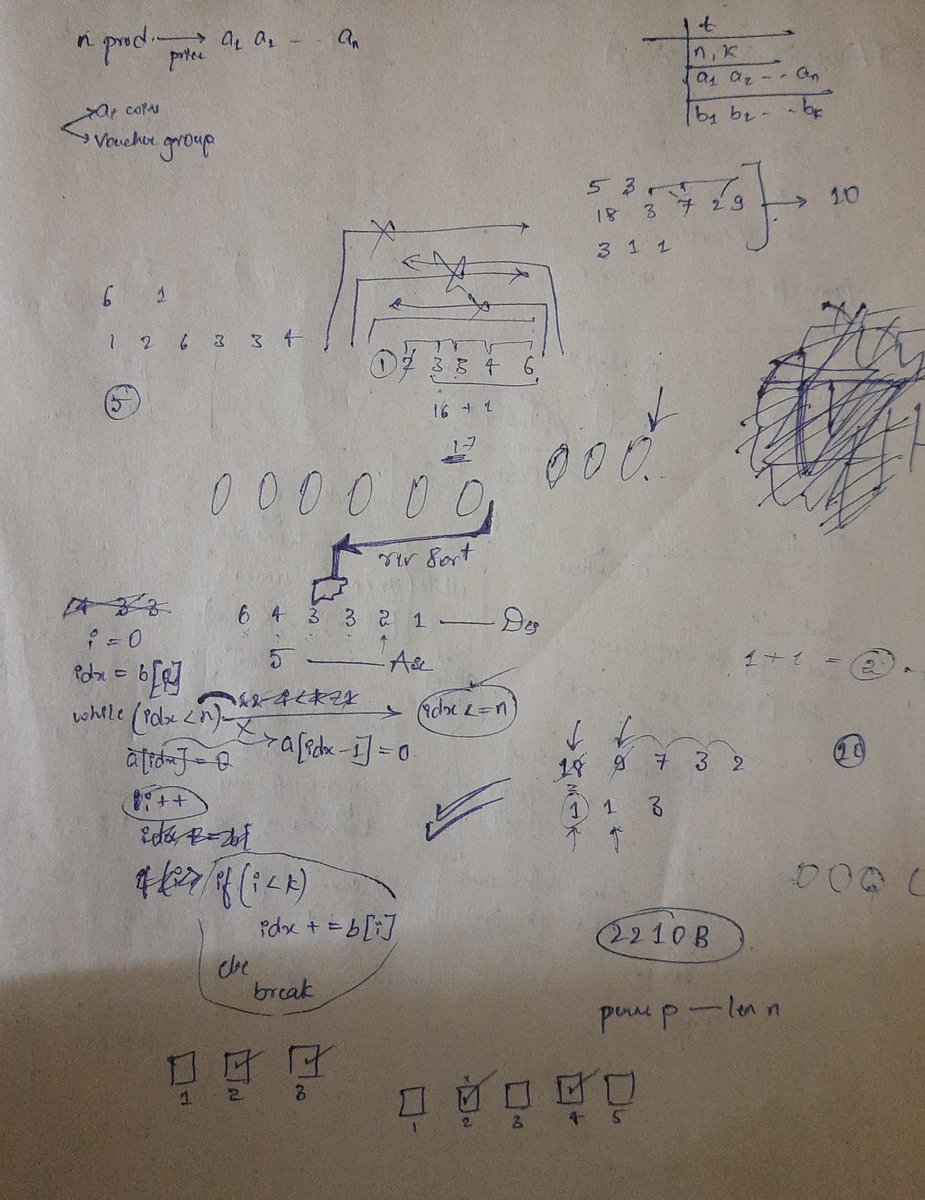 n prod. → a1 a2 - - an
price
t
n, k
a1 a2 - - an
b1 b2 - - bk
ai coins
Voucher group
5 3
18 3 7 2 9 → 10
3 1 1
6 1
1 2 6 3 3 4
1 2 3 3 4 6
5
16 + 1
17
0 0 0 0 0 0
0 0 0.
rev Sort
6 4 3 3 2 1 — Des
i = 0
5 — Asc
1 + 1 = 2.
idx = b[i]
while (idx < n) → idx <= n
a[idx] = 0 → a[idx-1] = 0
18 9 7 3 2
10
i++
1 1 3
if (i < k)
idx += b[i]
else
break
2210B
perm p — len n
1 2 3
1 2 3 4 5